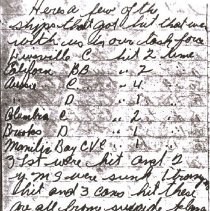 Heres a few of the
ships that got hit that were
with us in our task force
Louisville C hit 2 time
California BB " 2
Aussie C " 4
" D " 1
Columbia C " 2
Brooks D " 1
Manila Bay CVE " 1
3 Lst were hit and 2
y M S were sunk 1
1 hit and 3 cans hit these
are all from suicide plane